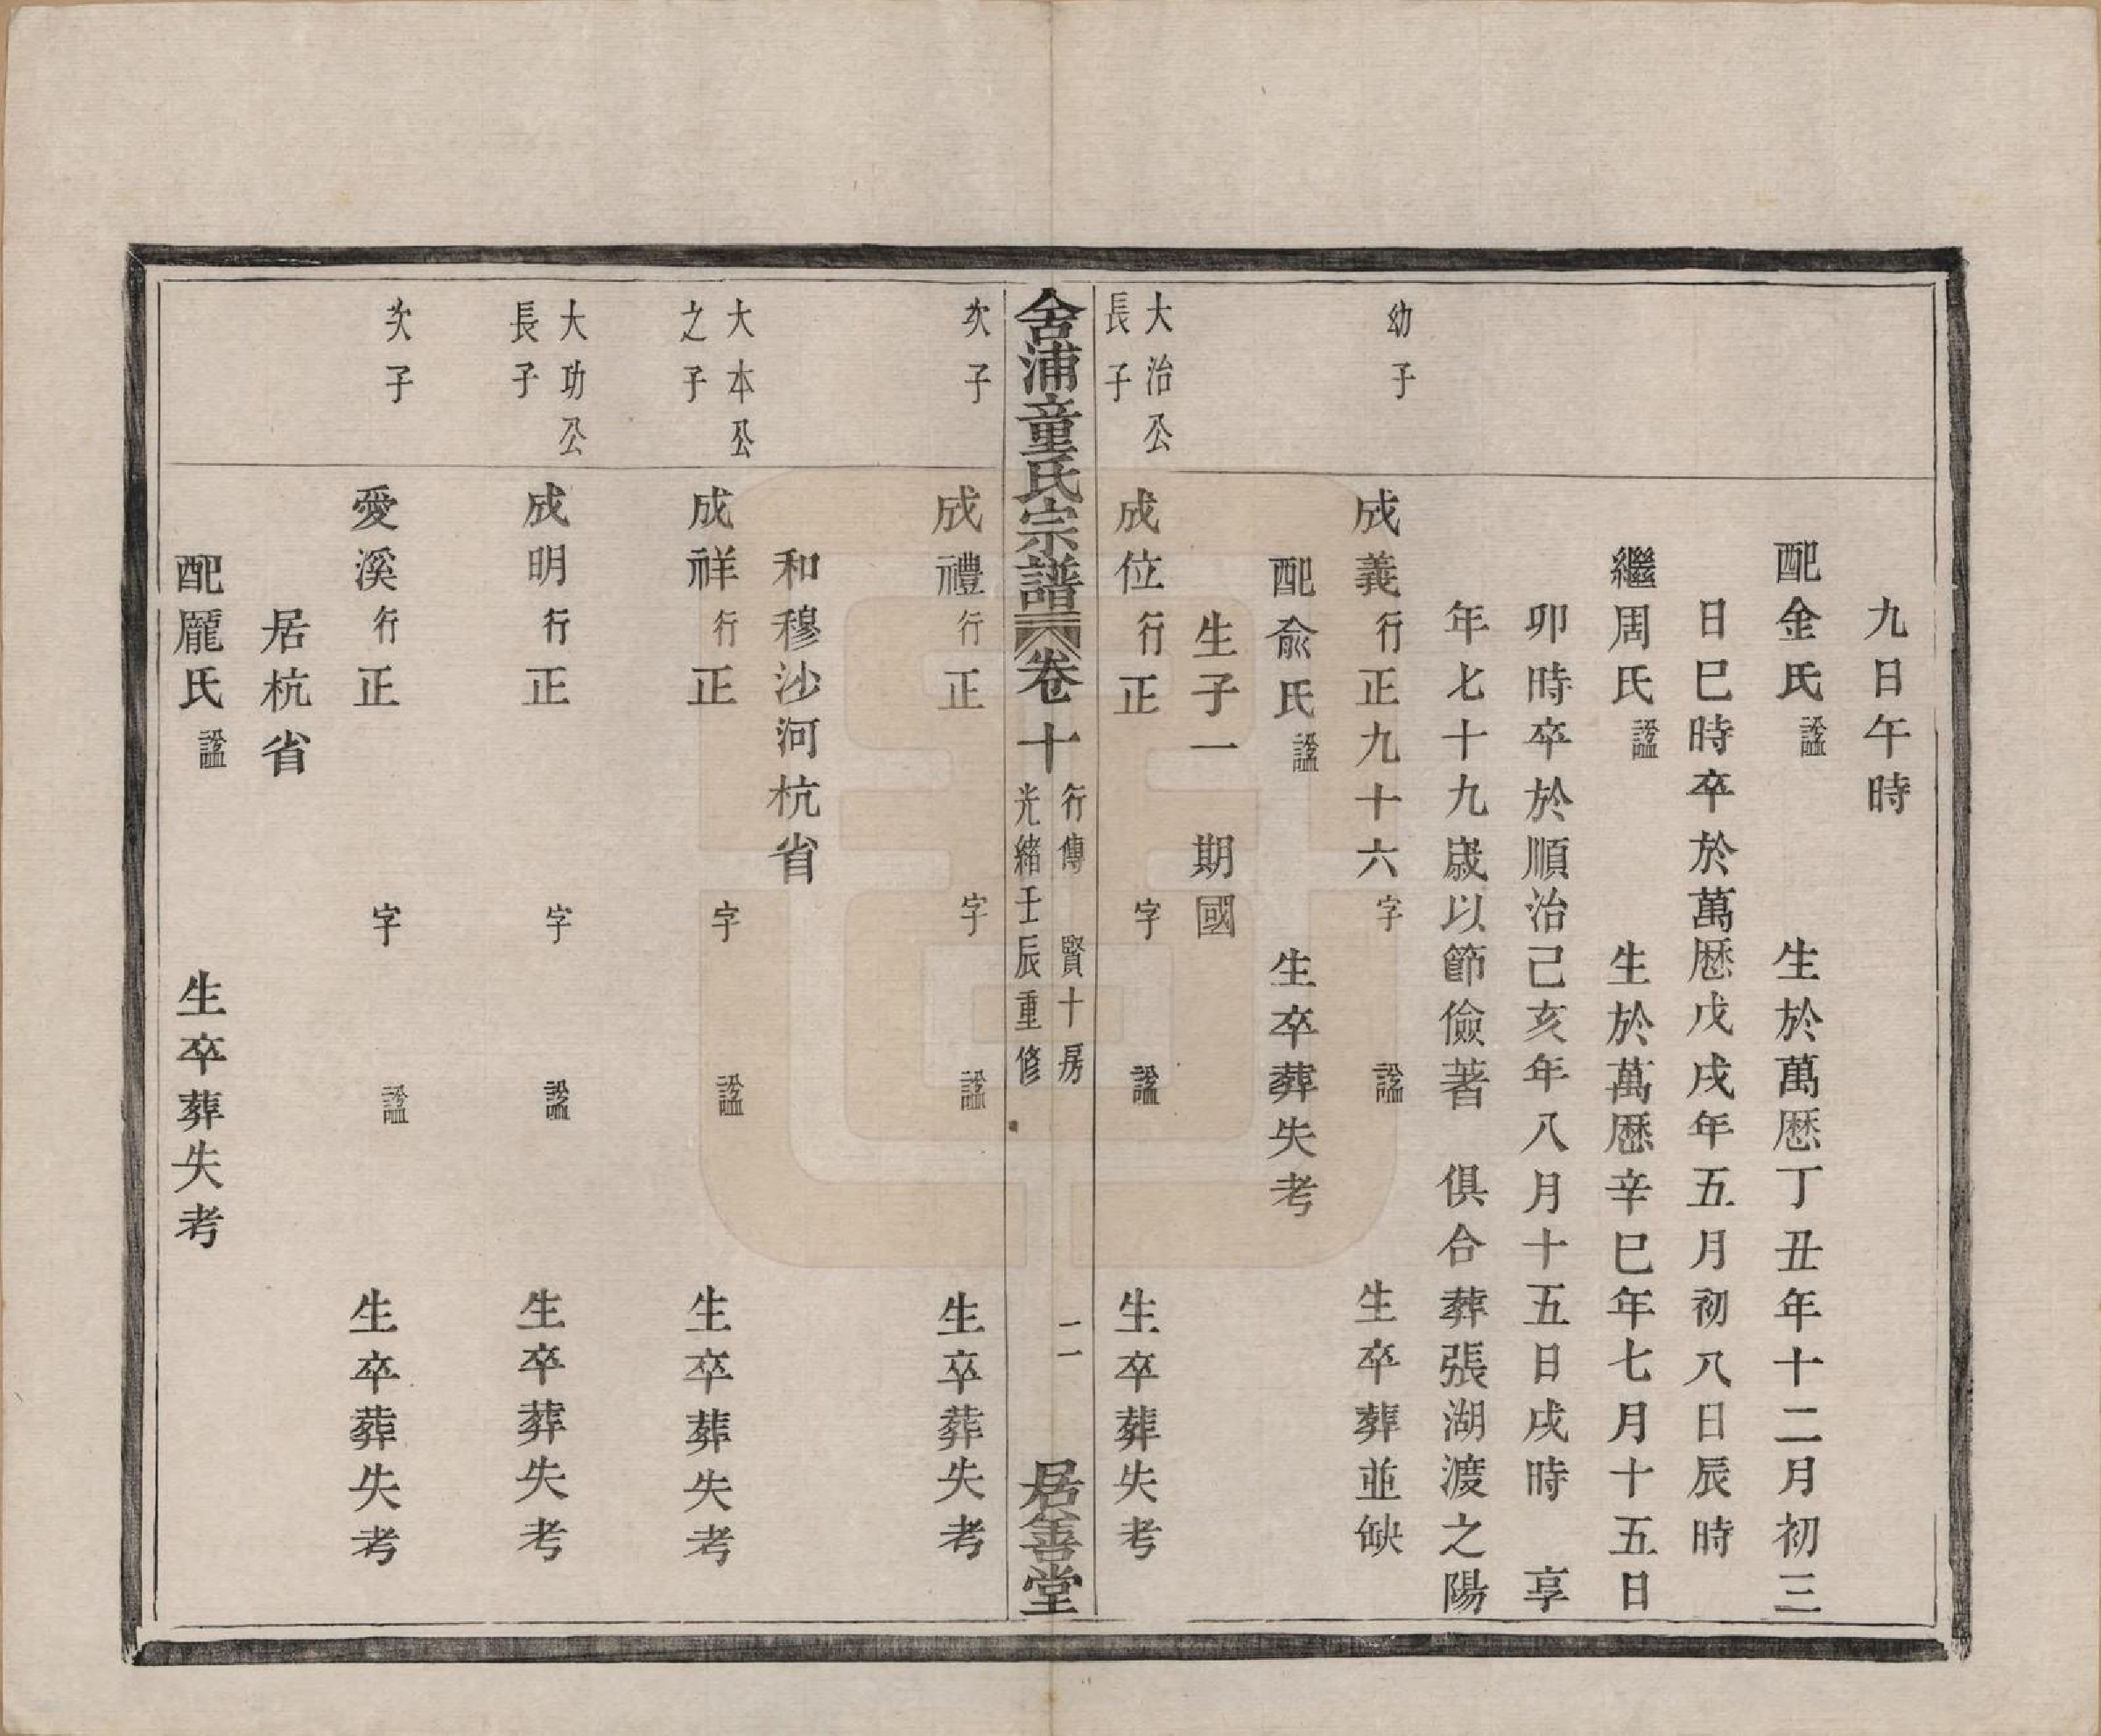 九日午時
配金氏諡 生於萬厯丁丑年十二月初三
日巳時卒於萬厯戊戌年五月初八日辰時
繼周氏諡 生於萬厯辛巳年七月十五日
卯時卒於順治己亥年八月十五日戌時 享
年七十九歲以節儉著 俱合葬張湖渡之陽
幼子
成義行正九十六字 諡 生卒葬並缺
配俞氏諡 生卒葬失考
生子一 期國
大治公
長子
成位行正 字 諡 生卒葬失考
舍浦童氏宗譜卷十
行傳 賢十房
光緒壬辰重修
二
居善堂
次子
成禮行正 字 諡 生卒葬失考
和穆沙河杭省
大本公
之子
成祥行正 字 諡 生卒葬失考
大功公
長子
成明行正 字 諡 生卒葬失考
次子
愛溪行正 字 諡 生卒葬失考
居杭省
配龐氏諡 生卒葬失考